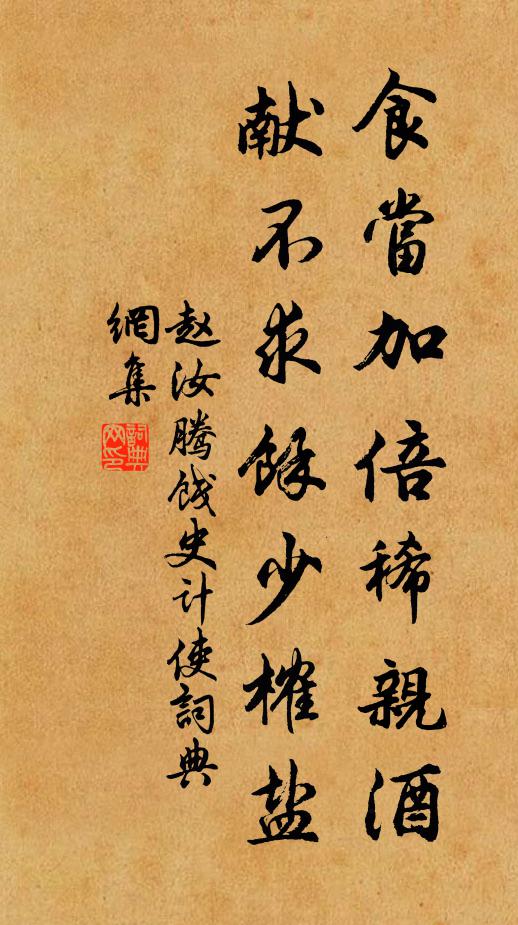 食當加倍稀親酒
献不求餘少榷盐
赵汝腾饯史计使詞典
網集
詞典
网印